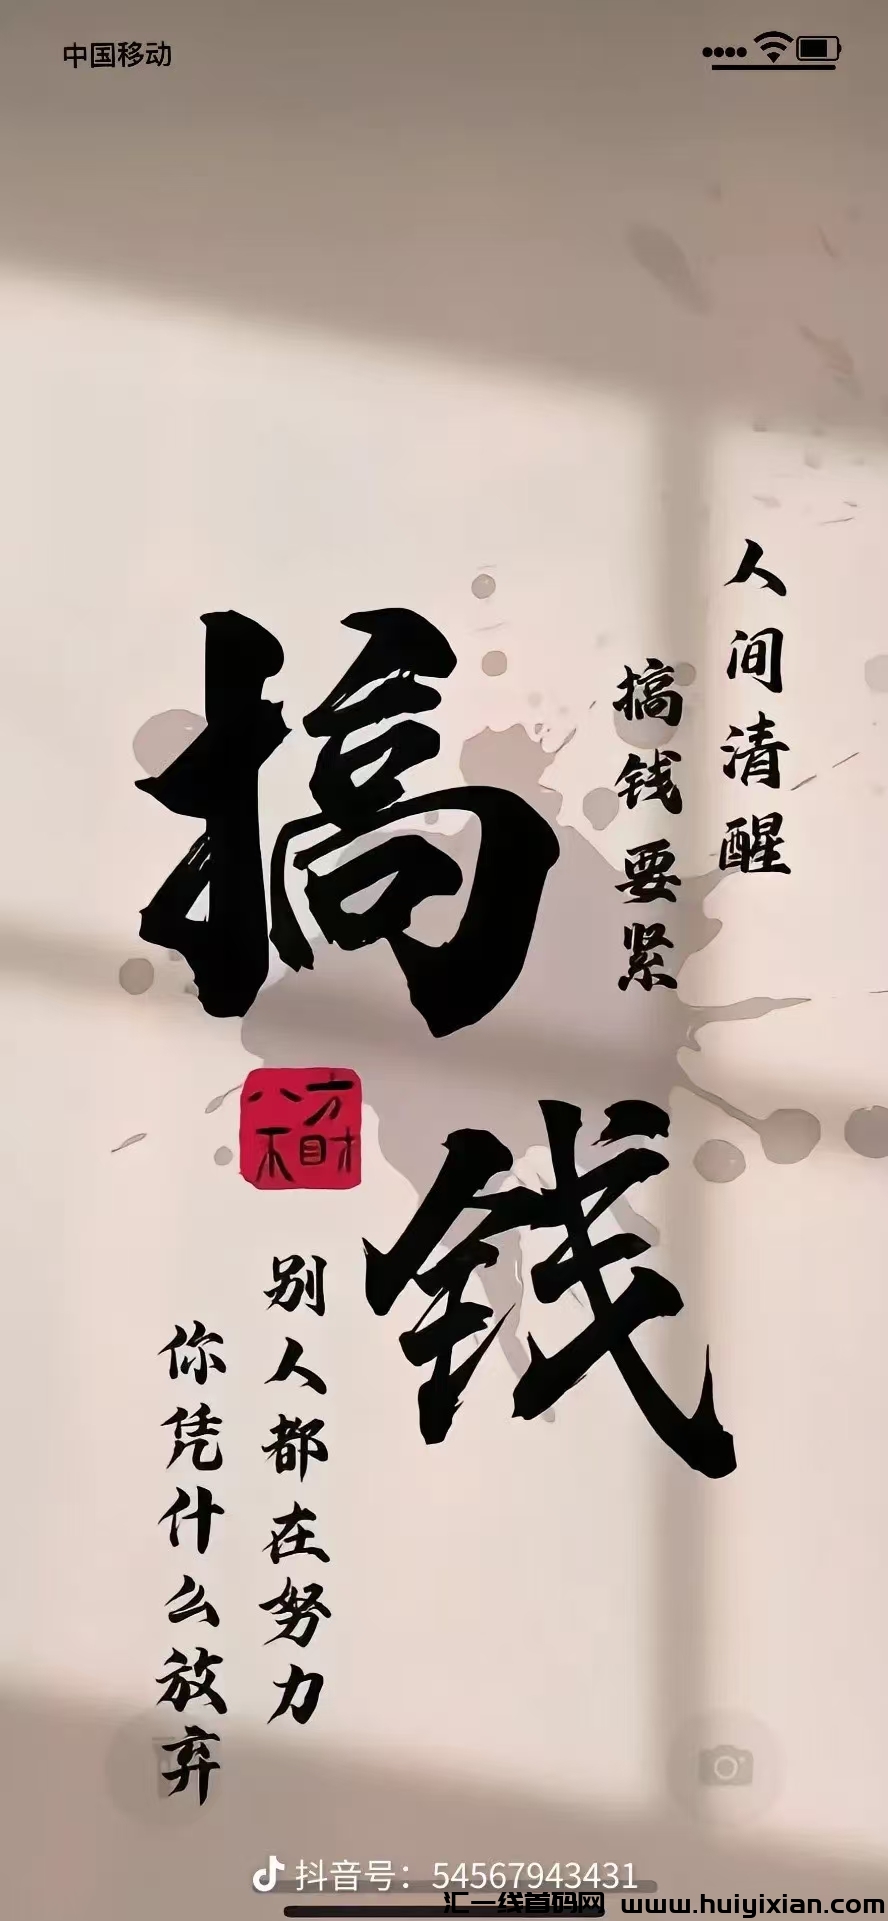 中国移动
人间清醒
搞钱要紧
搞钱
八方
不财
别人都在努力
你凭什么放弃
抖音号：54567943431
汇一线首码网 www.huiyixian.com